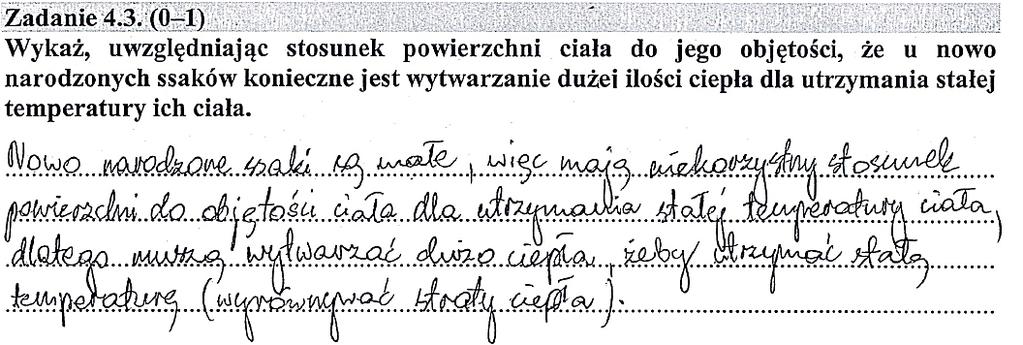 Zadanie 4.3. (0–1)
Wykaż, uwzględniając stosunek powierzchni ciała do jego objętości, że u nowo
narodzonych ssaków konieczne jest wytwarzanie dużej ilości ciepła dla utrzymania stałej
temperatury ich ciała.
Nowo narodzone ssaki są małe, więc mają niekorzystny stosunek
powierzchni do objętości ciała dla utrzymania stałej temperatury ciała,
dlatego muszą wytwarzać dużo ciepła, żeby utrzymać stałą
temperaturę (wyrównywać straty ciepła).